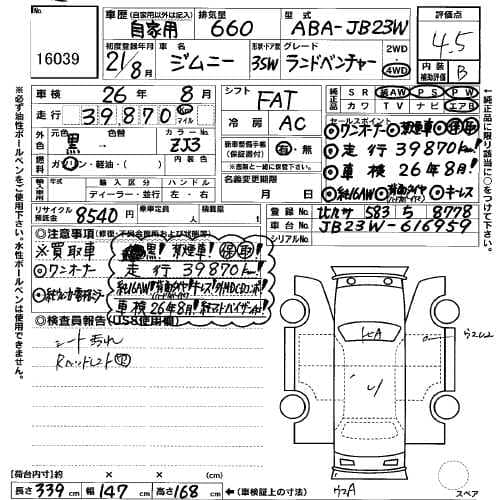 No.
16039
車歴 (自家用以外は記入) 自家用
排気量 660
型式 ABA-JB23W
評価点 4.5
内装補助評価 B
初度登録年月 21/8月
車名 ジムニー
形状・ドア数 3SW
グレード ランドベンチャー
2WD
4WD
車検 26年 8月
シフト FAT
純正品 SR 純AW PS PW
カワ TV ナビ エアB
走行 39870 km マイル
冷房 AC
セールスポイント
ワンオーナー 禁煙車! 保取
走行 39870km!
車検 26年8月!
キーレス
外色 元色 黒 色替
カラーNo. ZJ3
新車整備手帳(保証書付) 有・無
※書類と一緒に保管して下さい。
燃料 ガソリン・軽油・( )
名義変更期限 月 日
輸入車 年式 輸入区分 ハンドル
ディーラー・並行 左・右
リサイクル預託金 8540 円
乗車定員 人
積載量 t
登録 583 5 8778
車台No. JB23W-616959
シリアルNo.
◎注意事項 (修復・不具合箇所および状態等)
※買取車 黒! 禁煙車! 保取!
◎ワンオーナー 走行 39870km!
車検 26年8月!
◎検査員報告 (USS使用欄)
シート汚れ
※必ず油性ボールペンをご使用下さい。水性ボールペンは使用できません。
※純正品に限り該当に○をつけて下さい。
【荷台内寸】約 × × cm
長さ 339 cm 幅 147 cm 高さ 168 cm (車検証上の寸法)
スペア